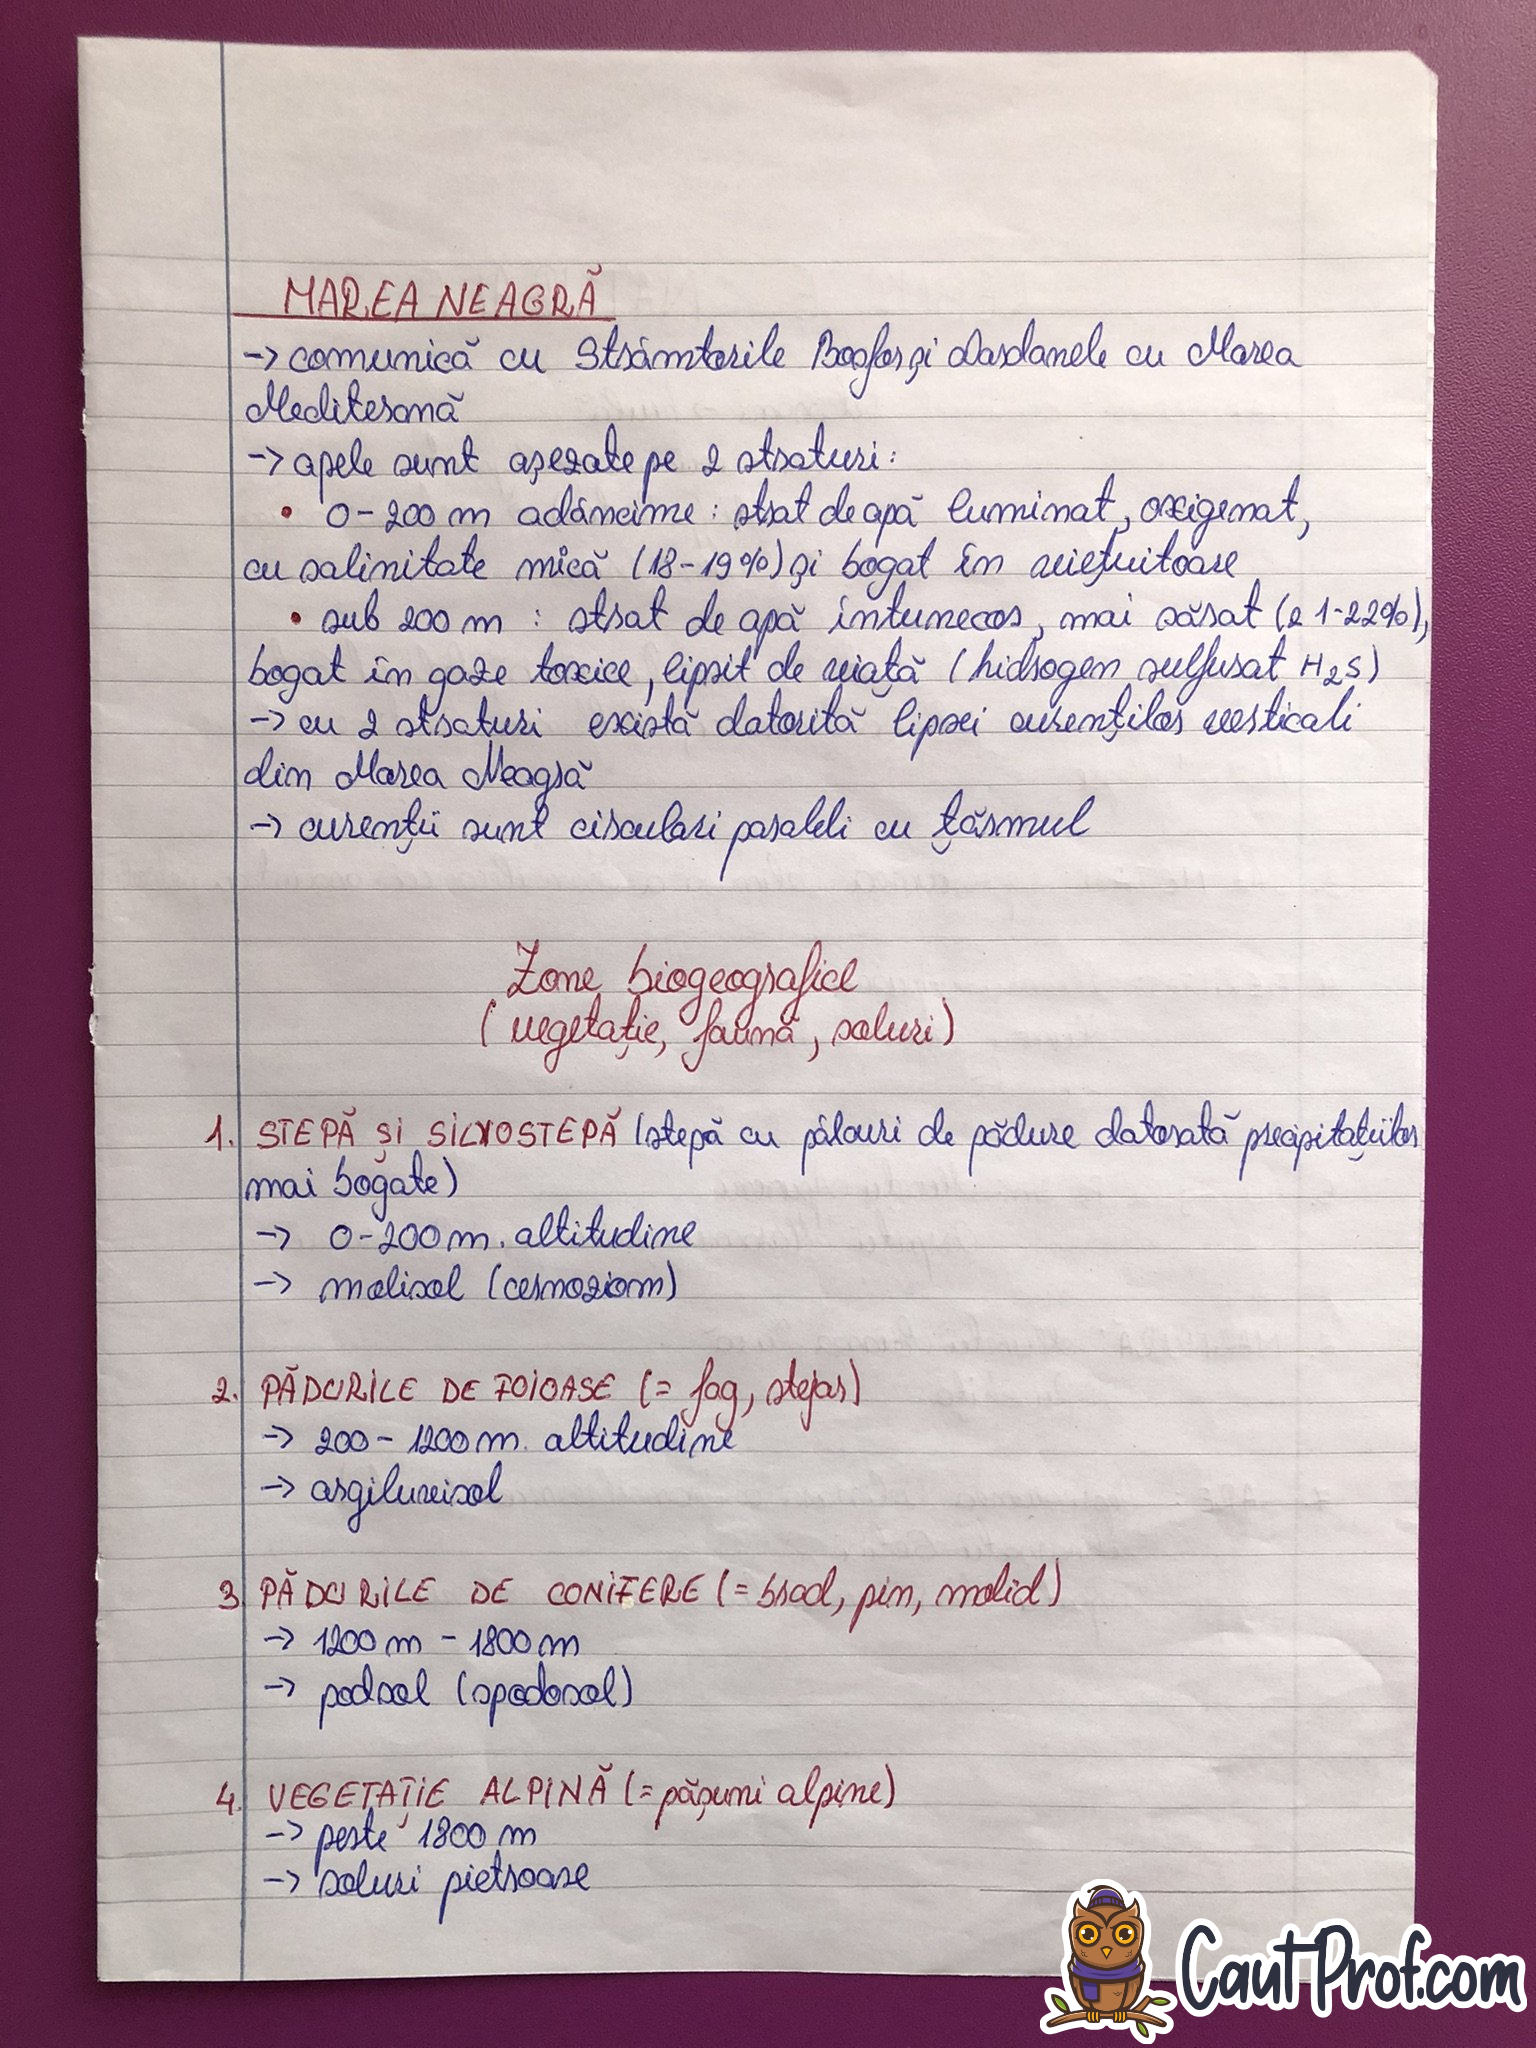 MAREA NEAGRĂ
→ comunică cu Strâmtorile Bosfor și Dardanele cu Marea
Mediterană
→ apele sunt așezate pe 2 straturi:
• 0-200 m adâncime: strat de apă luminat, oxigenat,
cu salinitate mică (18-19%) și bogat în viețuitoare
• sub 200 m : strat de apă întunecos, mai sărat (21-22%),
bogat în gaze toxice, lipsit de viață (hidrogen sulfurat H2S)
→ cu 2 straturi există datorită lipsei curenților verticali
din Marea Neagră
→ curenții sunt circulari paraleli cu țărmul
Zone biogeografice
(vegetație, faună, soluri)
1. STEPĂ ȘI SILVOSTEPĂ (stepă cu pâlcuri de pădure datorată precipitațiilor
mai bogate)
→ 0-200 m. altitudine
→ molisol (cernoziom)
2. PĂDURILE DE FOIOASE (= fag, stejar)
→ 200-1200 m. altitudine
→ argiluvisol
3 PĂDURILE DE CONIFERE (= brad, pin, molid)
→ 1200 m - 1800 m
→ podsol (spodosol)
4. VEGETAȚIE ALPINĂ (= pășuni alpine)
→ peste 1800 m
→ soluri pietroase
CautProf.com